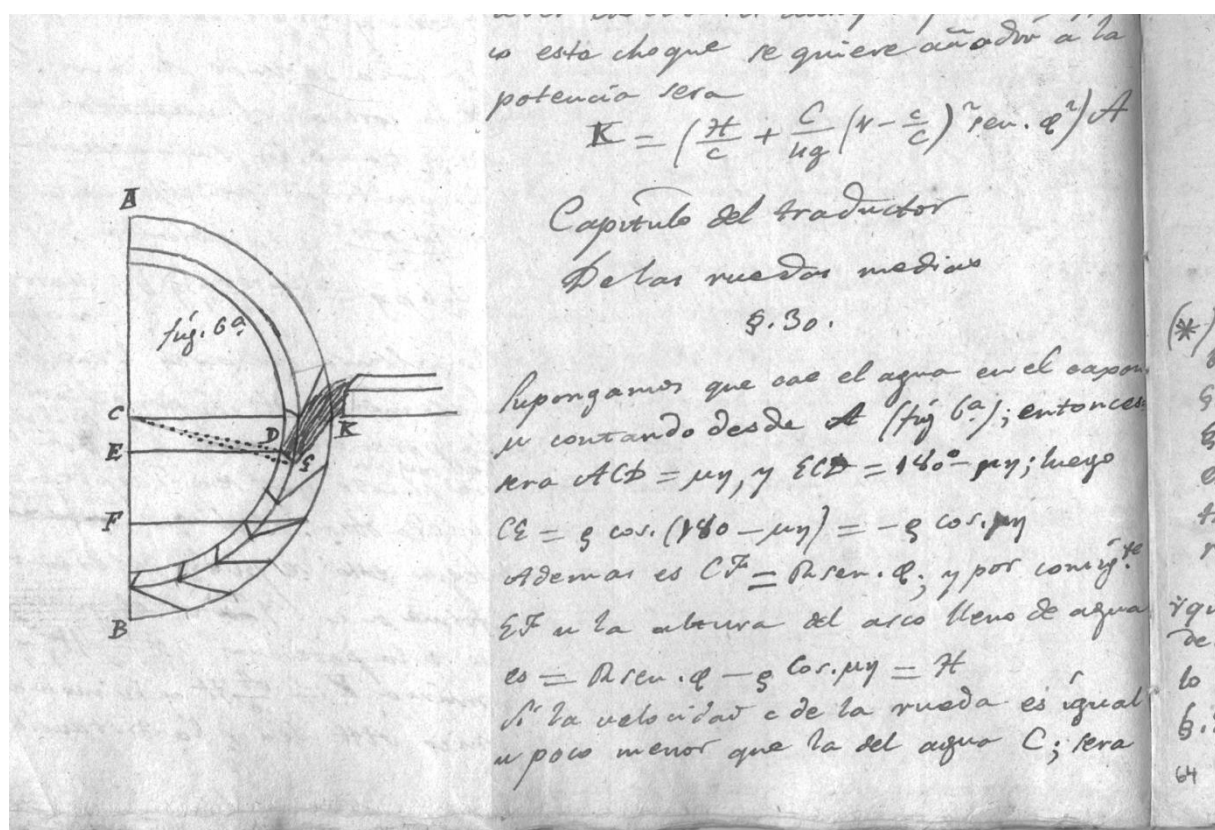 o esta choque se quiere añadir a la
potencia sera
K = (H/c + C/4g (1 - c/C)² sen. φ²) A
Capitulo del traductor
De las ruedas medias
§. 30.
Supongamos que cae el agua en el cajon
μ contando desde A (fig 6ª); entonces
sera ACD = μη, y ECD = 180° - μη; luego
CE = ρ cos. (180 - μη) = -ρ cos. μη
Ademas es CF = R sen. φ; y por consig.te
EF u la altura del arco lleno de agua
es = R sen. φ - ρ Cos. μη = H
Si la velocidad c de la rueda es igual
u poco menor que la del agua C; sera
A
fig. 6ª
C
D
K
E
G
F
B
(*)
lo
64